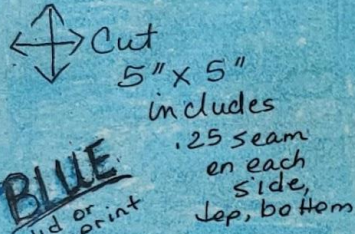 Cut
5" x 5"
includes
.25 seam
on each
side,
top, bottom
BLUE
or
print